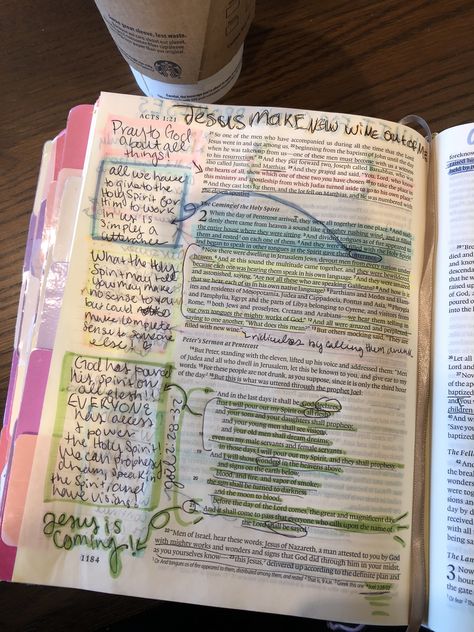 great sleeve, less waste.
ACTS 1:21
Jesus MAKE NEW WINE OUT OF ME
Pray to God
about all
things!
all we have
to give to the
Holy Spirit for
Him to work
in us is
simply a
utterance
What the Holy
Spirit may tell
you may make
no sense to you
but could
make complete
sense to someone
else!
God has poured
his spirit on
all flesh!!
EVERYONE
has access
& power
the Holy Spirit!
We can prophesy
dream, speak in
the Spirit, and
have visions!
Jesus is
coming!
1184
21 So one of the men who have accompanied us during all the time that the Lord
Jesus went in and out among us, 22 beginning from the baptism of John until the day
when he was taken up from us—one of these men must become with us a witness
to his resurrection." 23 And they put forward two, Joseph called Barsabbas, who was
also called Justus, and Matthias. 24 And they prayed and said, "You, Lord, who know
the hearts of all, show which one of these two you have chosen 25 to take the place in
this ministry and apostleship from which Judas turned aside to go to his own place."
26 And they cast lots for them, and the lot fell on Matthias, and he was numbered with
The Coming of the Holy Spirit
2 When the day of Pentecost arrived, they were all together in one place. 2 And
suddenly there came from heaven a sound like a mighty rushing wind, and it filled
the entire house where they were sitting. 3 And divided tongues as of fire appeared
to them and rested on each one of them. 4 And they were all filled with the Holy Spirit
and began to speak in other tongues as the Spirit gave them utterance.
5 Now there were dwelling in Jerusalem Jews, devout men from every nation under
heaven. 6 And at this sound the multitude came together, and they were bewildered,
because each one was hearing them speak in his own language. 7 And they were amazed
and astonished, saying, "Are not all these who are speaking Galileans? 8 And how is it
that we hear, each of us in his own native language? 9 Parthians and Medes and Elamites
and residents of Mesopotamia, Judea and Cappadocia, Pontus and Asia, 10 Phrygia
and Pamphylia, Egypt and the parts of Libya belonging to Cyrene, and visitors from
Rome, 11 both Jews and proselytes, Cretans and Arabians—we hear them telling in
our own tongues the mighty works of God." 12 And all were amazed and perplexed,
saying to one another, "What does this mean?" 13 But others mocking said, "They are
filled with new wine."
ridiculous by calling them drunk
Peter's Sermon at Pentecost
14 But Peter, standing with the eleven, lifted up his voice and addressed them: "Men
of Judea and all who dwell in Jerusalem, let this be known to you, and give ear to my
words. 15 For these people are not drunk, as you suppose, since it is only the third hour
of the day. 16 But this is what was uttered through the prophet Joel:
17 "'And in the last days it shall be, God declares,
that I will pour out my Spirit on all flesh,
and your sons and your daughters shall prophesy,
and your young men shall see visions,
and your old men shall dream dreams;
18 even on my male servants and female servants
in those days I will pour out my Spirit, and they shall prophesy.
19 And I will show wonders in the heavens above
and signs on the earth below,
blood, and fire, and vapor of smoke;
20 the sun shall be turned to darkness
and the moon to blood,
before the day of the Lord comes, the great and magnificent day.
21 And it shall come to pass that everyone who calls upon the name of
the Lord shall be saved.'
22 "Men of Israel, hear these words: Jesus of Nazareth, a man attested to you by God
with mighty works and wonders and signs that God did through him in your midst,
as you yourselves know— 23 this Jesus, delivered up according to the definite plan and
THE FELL
3 Now